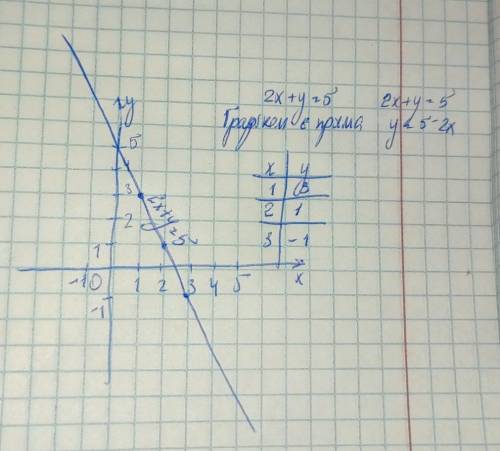 2x+y=5 2x+y=5
Графіком є пряма y=5-2x
x y
1 3
2 1
3 -1
y
5
4
3
2
1
2x+y=5
-1 0 1 2 3 4 5 x
-1